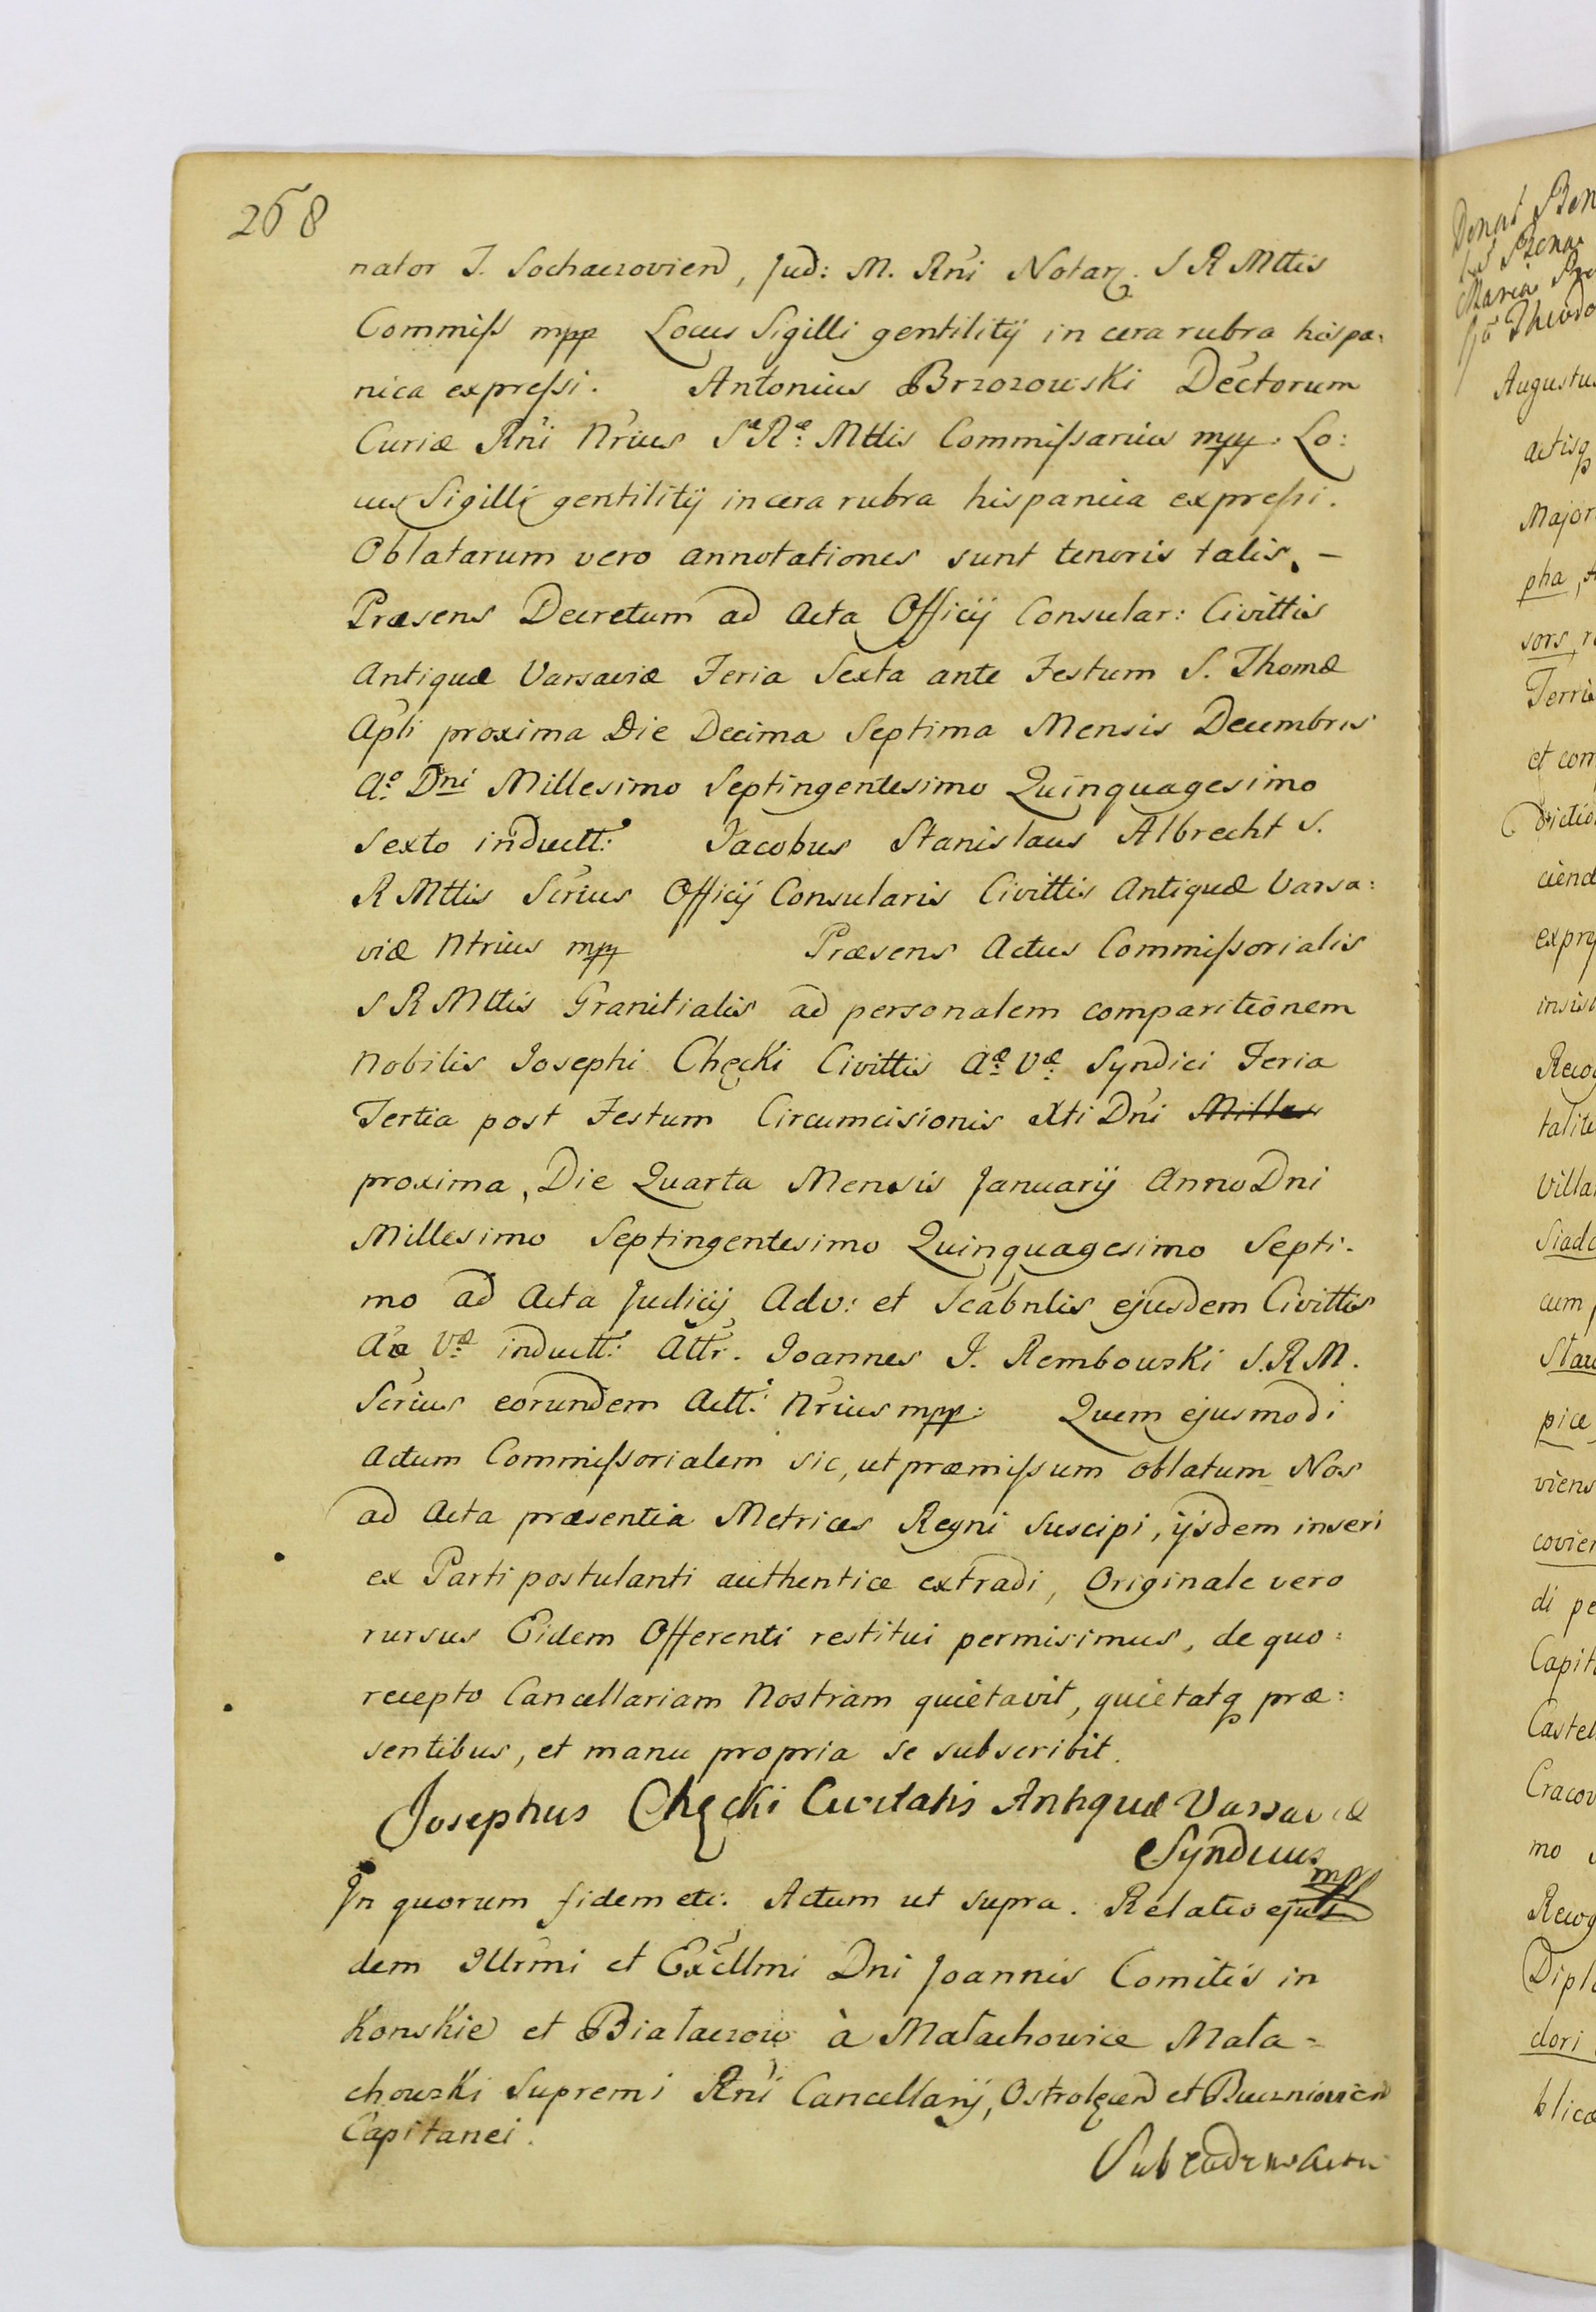 268
nator T. Sochaczovien, Jud: M. Rni Notarz. S R Mttis
Commiss mpp Locus Sigilli gentilitij in cera rubra hispa:
nica expressi. Antonius Brzozowski Dectorum
Curiæ Rni Nrius Sæ Ræ: Mttis Commissarius mpp. Lo:
cus Sigilli gentilitij in cera rubra hispanica expressi.
Oblatarum vero annotationes sunt tenoris talis. –
Præsens Decretum ad Acta Officij Consular: Civittis
Antiquæ Varsaviæ Feria Sexta ante Festum S. Thomæ
Apli proxima Die Decima Septima Mensis Decembris
Ao: Dni Millesimo Septingentesimo Quinquagesimo
Sexto inductt: Jacobus Stanislaus Albrecht S.
R Mttis Scrius Officij Consularis Civittis Antiquæ Varsa:
viæ Ntrius mpp Præsens Actus Commissorialis
S R Mttis Granitialis ad personalem comparitionem
Nobilis Josephi Chęcki Civittis Aæ: Væ: Syndici Feria
Tertia post Festum Circumcisionis Xti Dni Milles
proxima, Die Quarta Mensis Januarij Anno Dni
Millesimo Septingentesimo Quinquagesimo Septi-
mo ad Acta Judicij Adv: et Scabnlis ejusdem Civittis
Aæ Væ: inductt: Attr. Joannes J. Rembowski S.R.M.
Scrius eorundem Actt: Nrius mpp: Quem ejusmodi
Actum Commissorialem sic, ut præmissum oblatum Nos
ad Acta præsentia Metrices Regni Suscipi, ijsdem inseri
ex Parti postulanti authentice extradi, Originale vero
rursus Eidem Offerenti restitui permisimus, de quo:
recepto Cancellariam Nostram quietavit, quietatq præ:
sentibus, et manu propria se subscribit.
Josephus Chęcki Civitatis Antiquæ Varsaviæ
Syndicus
mpp
In quorum fidem etc. Actum ut supra. Relatio ejus
dem Illrmi et Excllmi Dni Joannis Comitis in
Konskie et Białaczow à Małachowice Mała-
chowski Supremi Rni Cancellarij, Ostrołęcen et Buczniovien
Capitanei.
Sub eodem Actu
Augustus
actisq
Major
pha,
sors,
et com
expre
Villa
cum
viens
di pe
Capit
Castel
Cracov
mo
Recog
Dipl
dori
blicæ